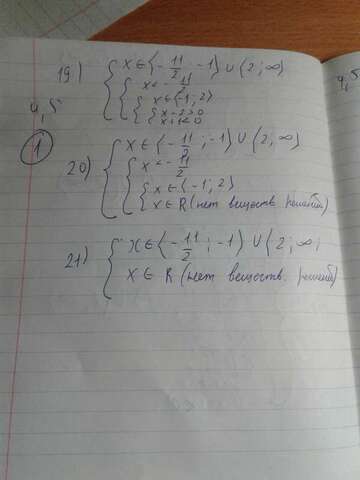 19) { x ∈ (-11/2; -1) ∪ (2; ∞)
{ x < -11/2
{ x ∈ (-1; 2)
{ x-2>0
{ x+1<0
4,5
1
20) { x ∈ (-11/2; -1) ∪ (2; ∞)
{ x < -11/2
{ x ∈ (-1; 2)
{ x ∈ R (нет веществ. решений)
21) { x ∈ (-11/2; -1) ∪ (2; ∞;
x ∈ R (нет веществ. решений)
4,5